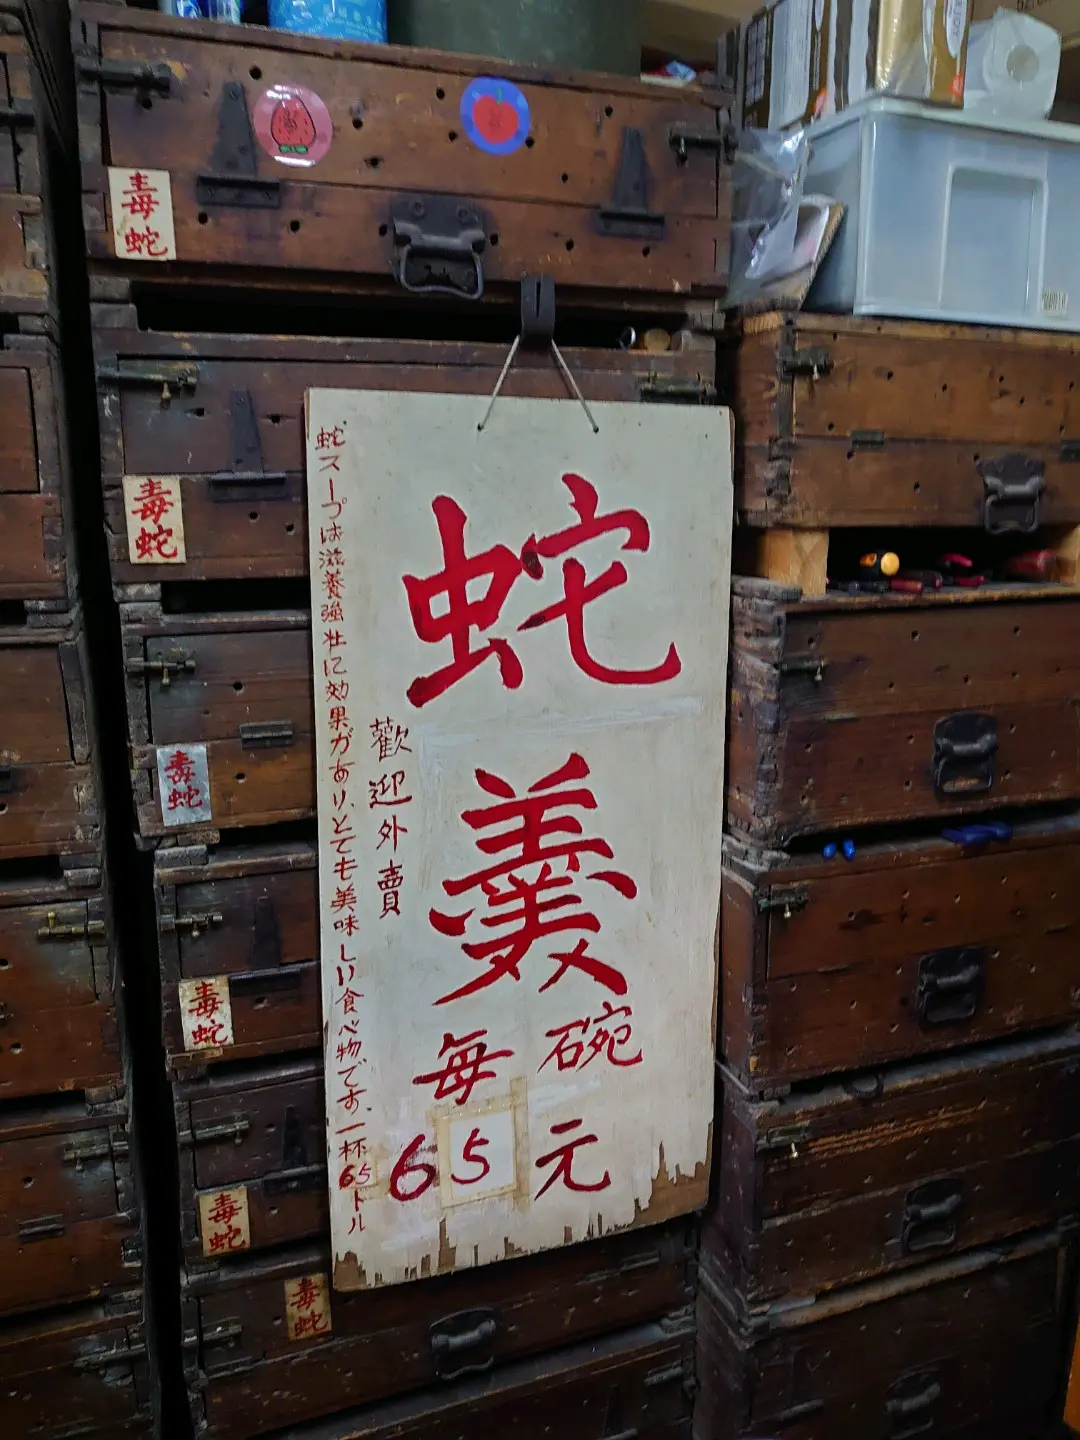 毒蛇
毒蛇
毒蛇
毒蛇
毒蛇
毒蛇
蛇羹
每碗
65元
歡迎外賣
蛇スープは滋養強壮に効果があり、とても美味しい食べ物です、一杯65ドル